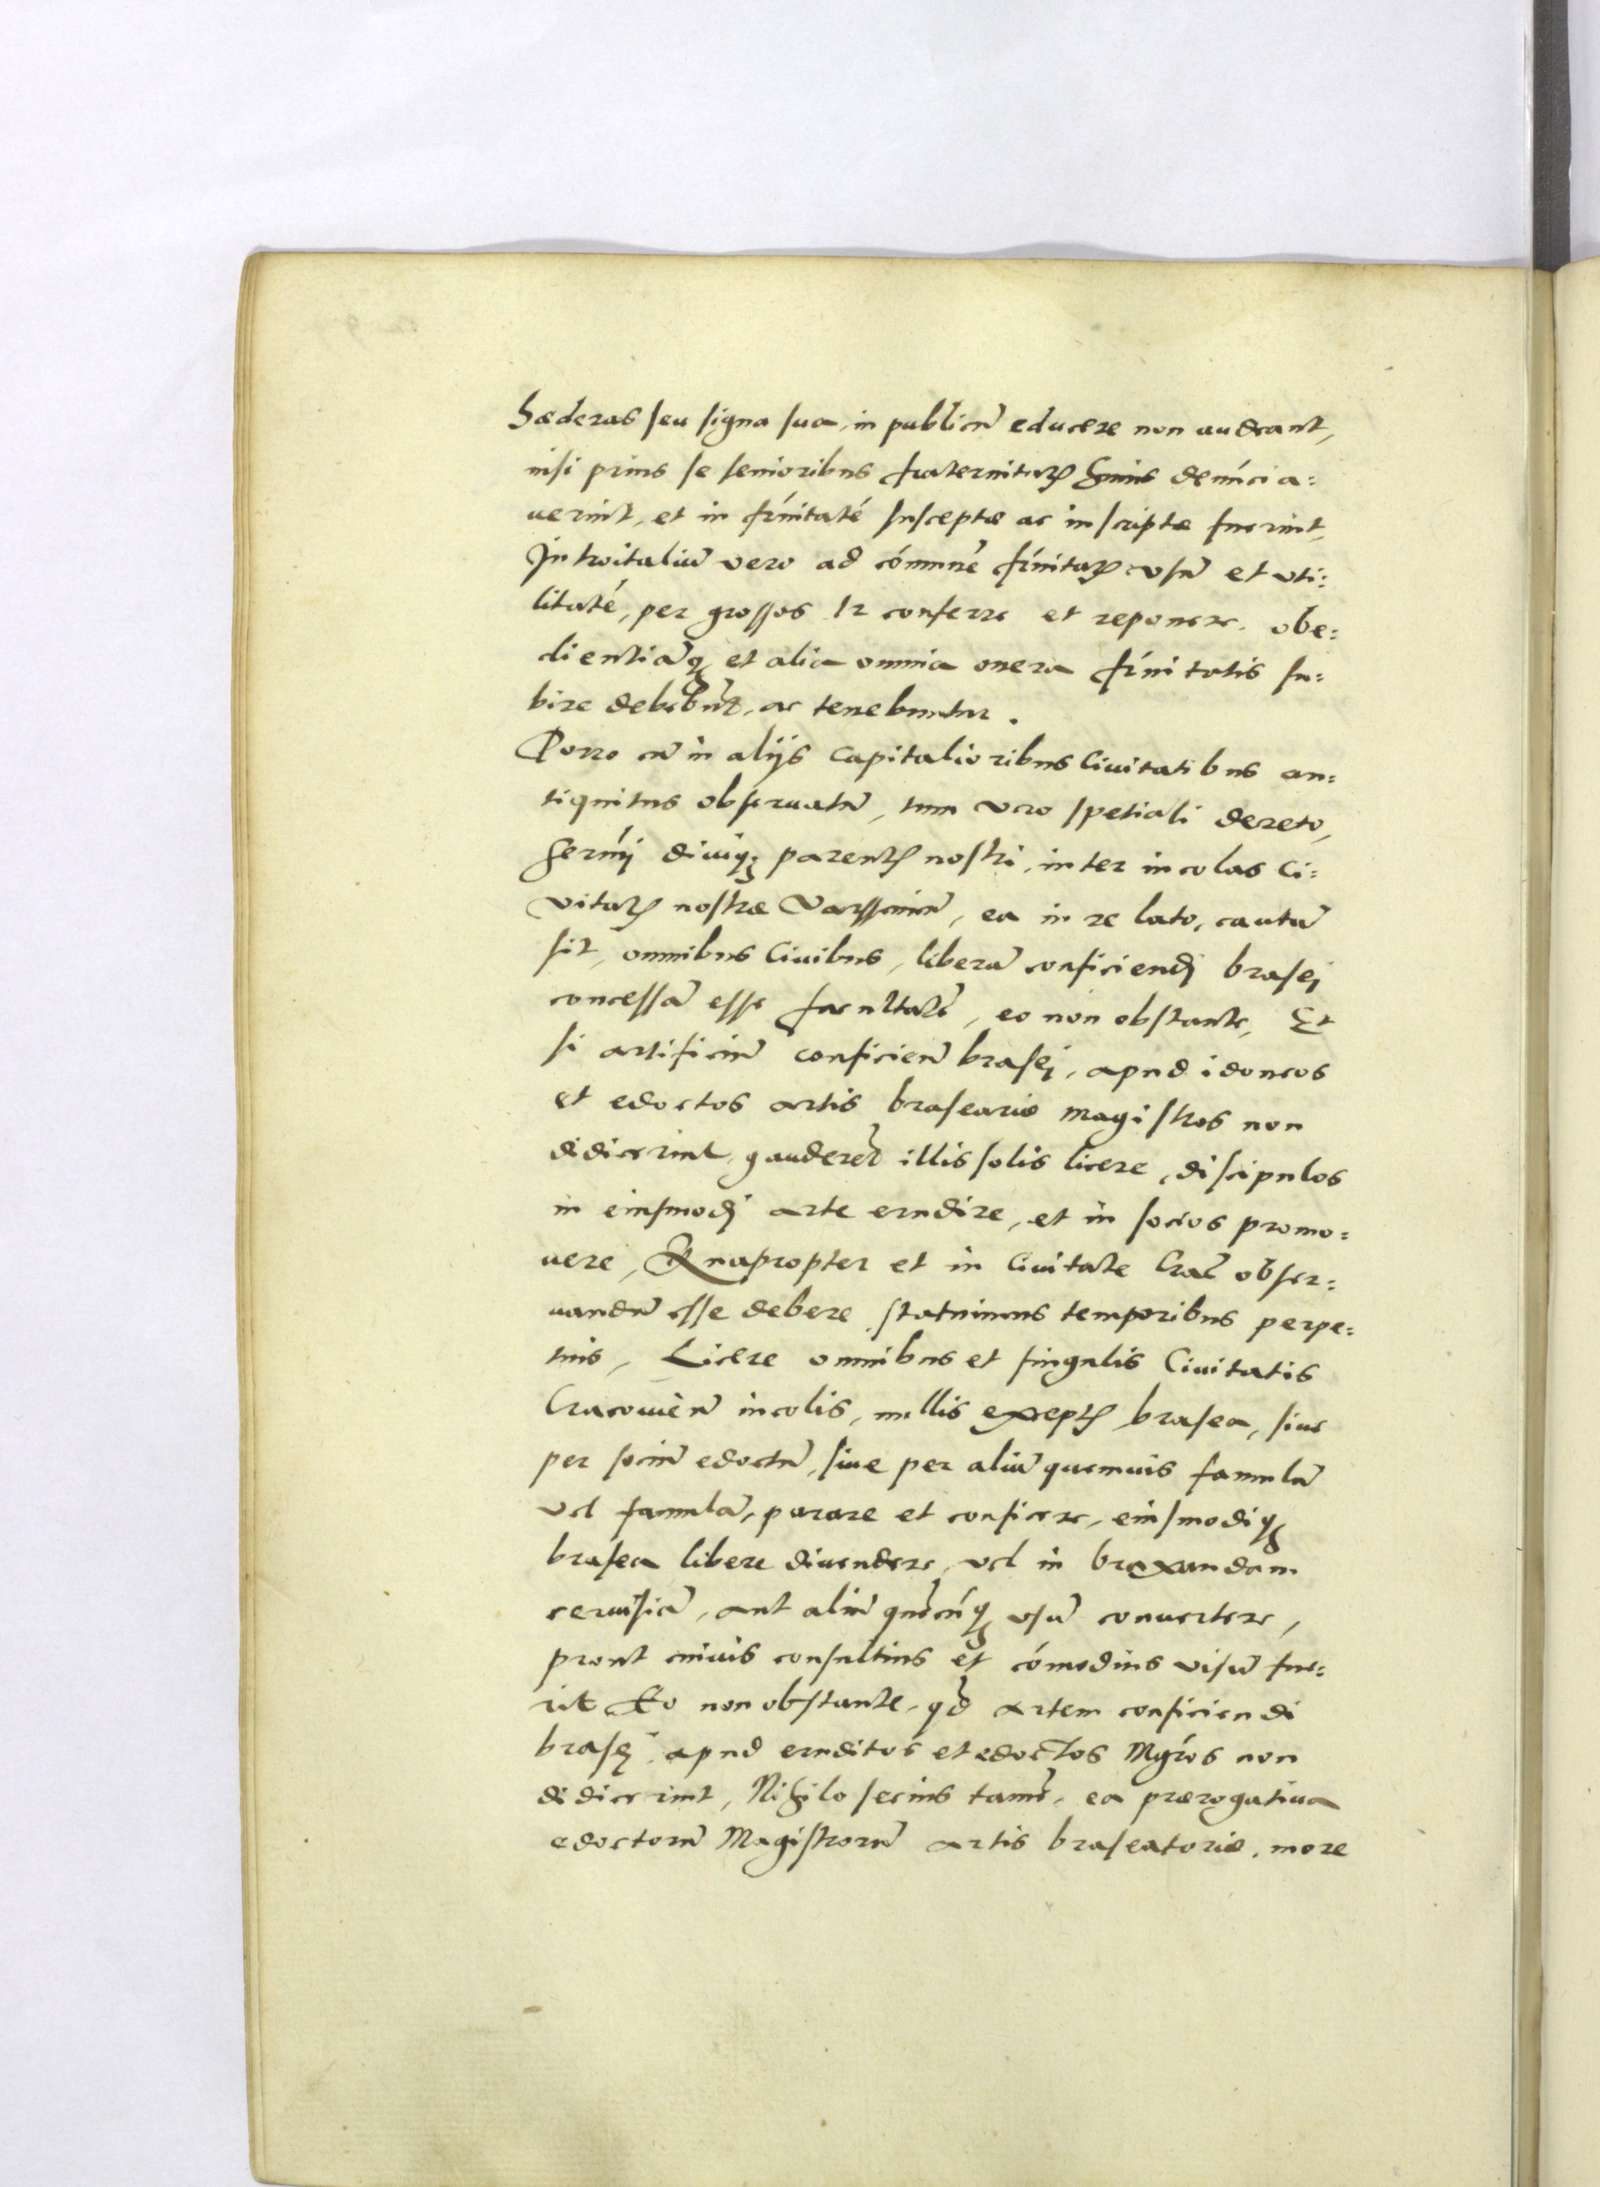 Hæderas seu signa sua, in publicū educere non audeant,
nisi prius se senioribus fraternitatꝭ huius denūcia:
uerint, et in frnitatē susceptæ ac inscriptæ fuerint,
Introitaliū vero ad cōmunē frnitatꝭ usū et uti:
litatē, per grossos 12 conferre et reponere, obe:
dientiāq̧ et alia omnia onera frnitatis su:
bire debebūt, ac tenebuntur.
Porro cū in alijs capitalioribus Ciuitatibus an:
tiquitus obseruatū, tum vero spetiali decreto,
Sermi diuiq̧ parentꝭ nostri, inter incolas Ci:
vitatꝭ nostræ Varssauień, ea in re lato, cautū
sit, omnibus Ciuibus, liberā conficiendj brasej
concessā esse facultatē, eo non obstante, Et
si artificiū conficien̄ brasej, apud idoneos
et edoctos artis brasearie magistros non
didicerint, gauderet̄ illis solis licere, discipulos
in eiusmodj arte erudire, et in socios promo:
uere, Quapropter et in Ciuitate Crac̄ obser:
uandū esse debere statuimus temporibus perpe:
tuis, Licere omnibus et singulis Ciuitatis
Cracouień incolis, nullis exceptꝭ brasea, siue
per sociū edoctū, siue per aliū quemuis famulū
vel famulā, parare et conficere, eiusmodiq̧
brasea libere diuendere, vel in braxandam
ceruisiā, aut aliū quēcūq̧ usū conuertere,
prout cuiuis consultius et cōmodius visū fue:
rit Eo non obstante, qd̄ artem conficiendi
brasej apud eruditos et edoctos Mgros non
didicerint, Nihilo secius tamē, ea prærogatiua
edoctorū Magistrorū artis braseatoriæ, more